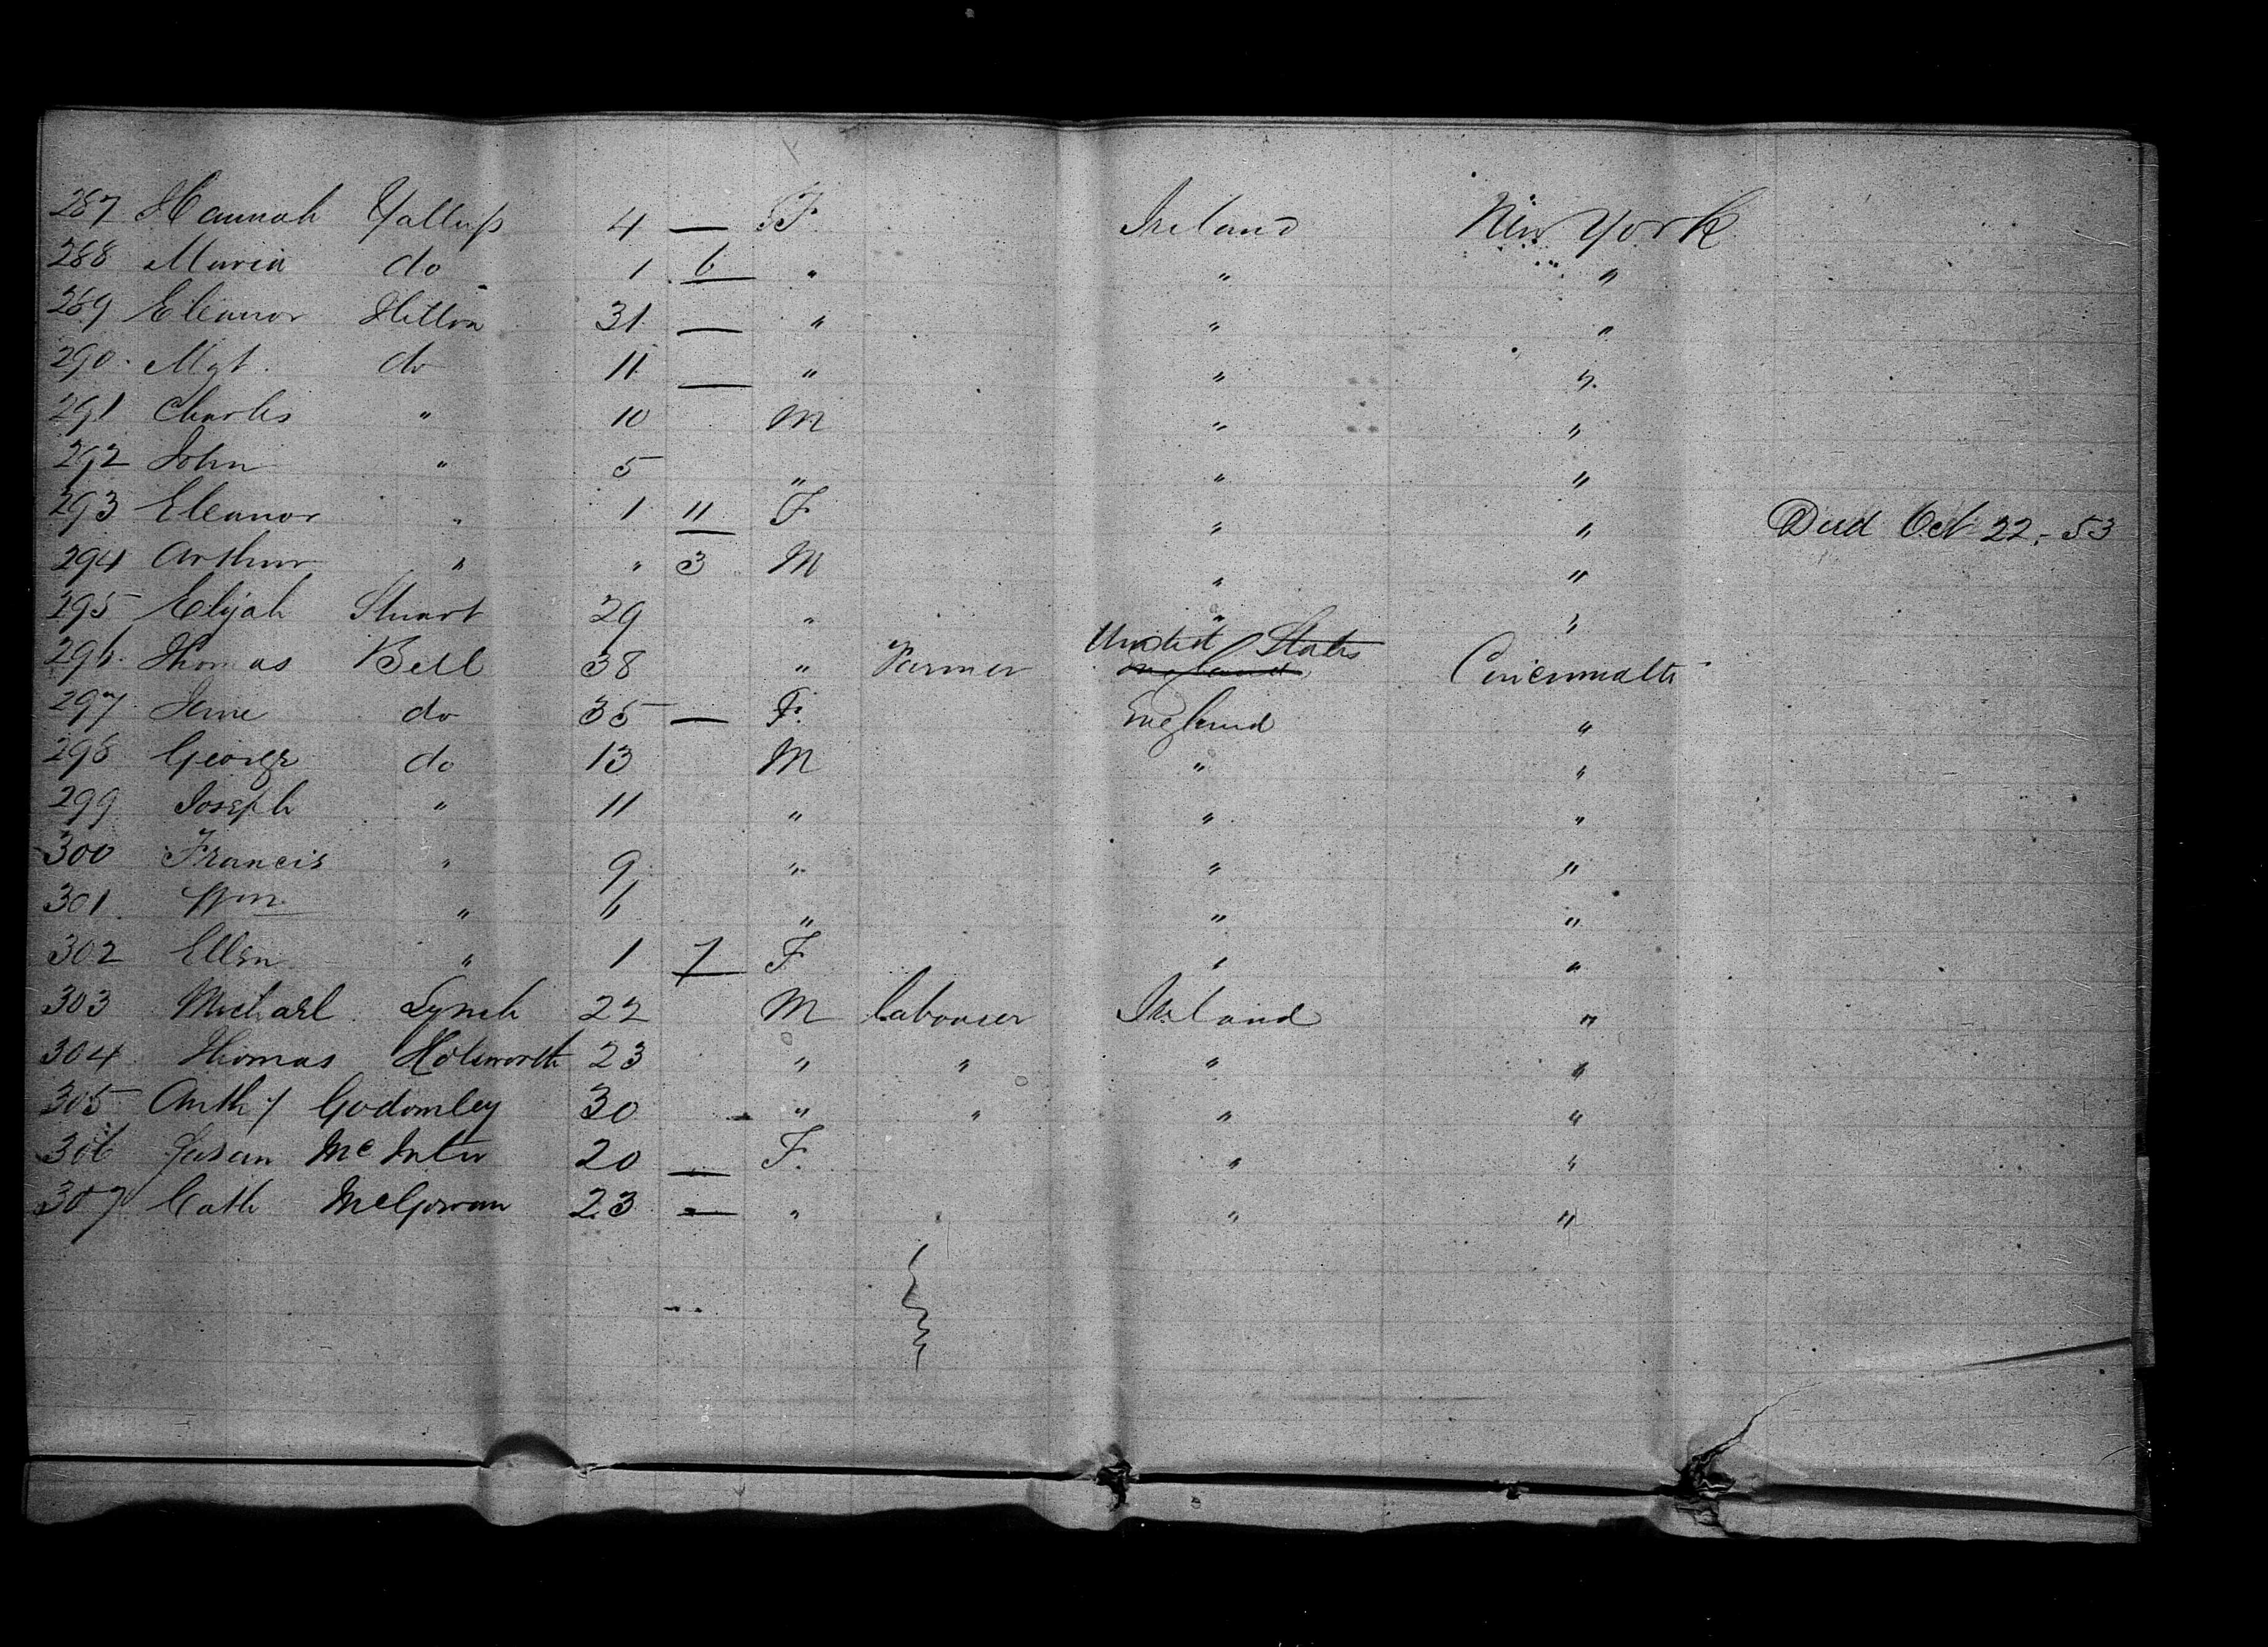 287 Hannah Yallup 4 — F Ireland New York
288 Maria do 1 6 " " "
289 Eleanor Hilton 31 — " " "
290 Mgt. do 11 — " " "
291 Charles " 10 M " "
292 John " 5 " " "
293 Eleanor " 1 11 F " " Died Oct 22.- 53
294 Arthur " " 3 M " "
295 Elijah Stuart 29 " " "
United States
296. Thomas Bell 38 " Farmer England Cincinnatti
297 Jane do 35 — F. England "
298 George do 13 M " "
299 Joseph " 11 " " "
300 Francis " 9 " " "
301. Wm " 6 " " "
302 Ellen " 1 7 F " "
303 Michael Lynch 22 M Labourer Ireland "
304 Thomas Holsworth 23 " " " "
305 Anthy Godomley 30 " " " "
306 McInter 20 — F. " "
307 Cath McGowan 23 — " " "